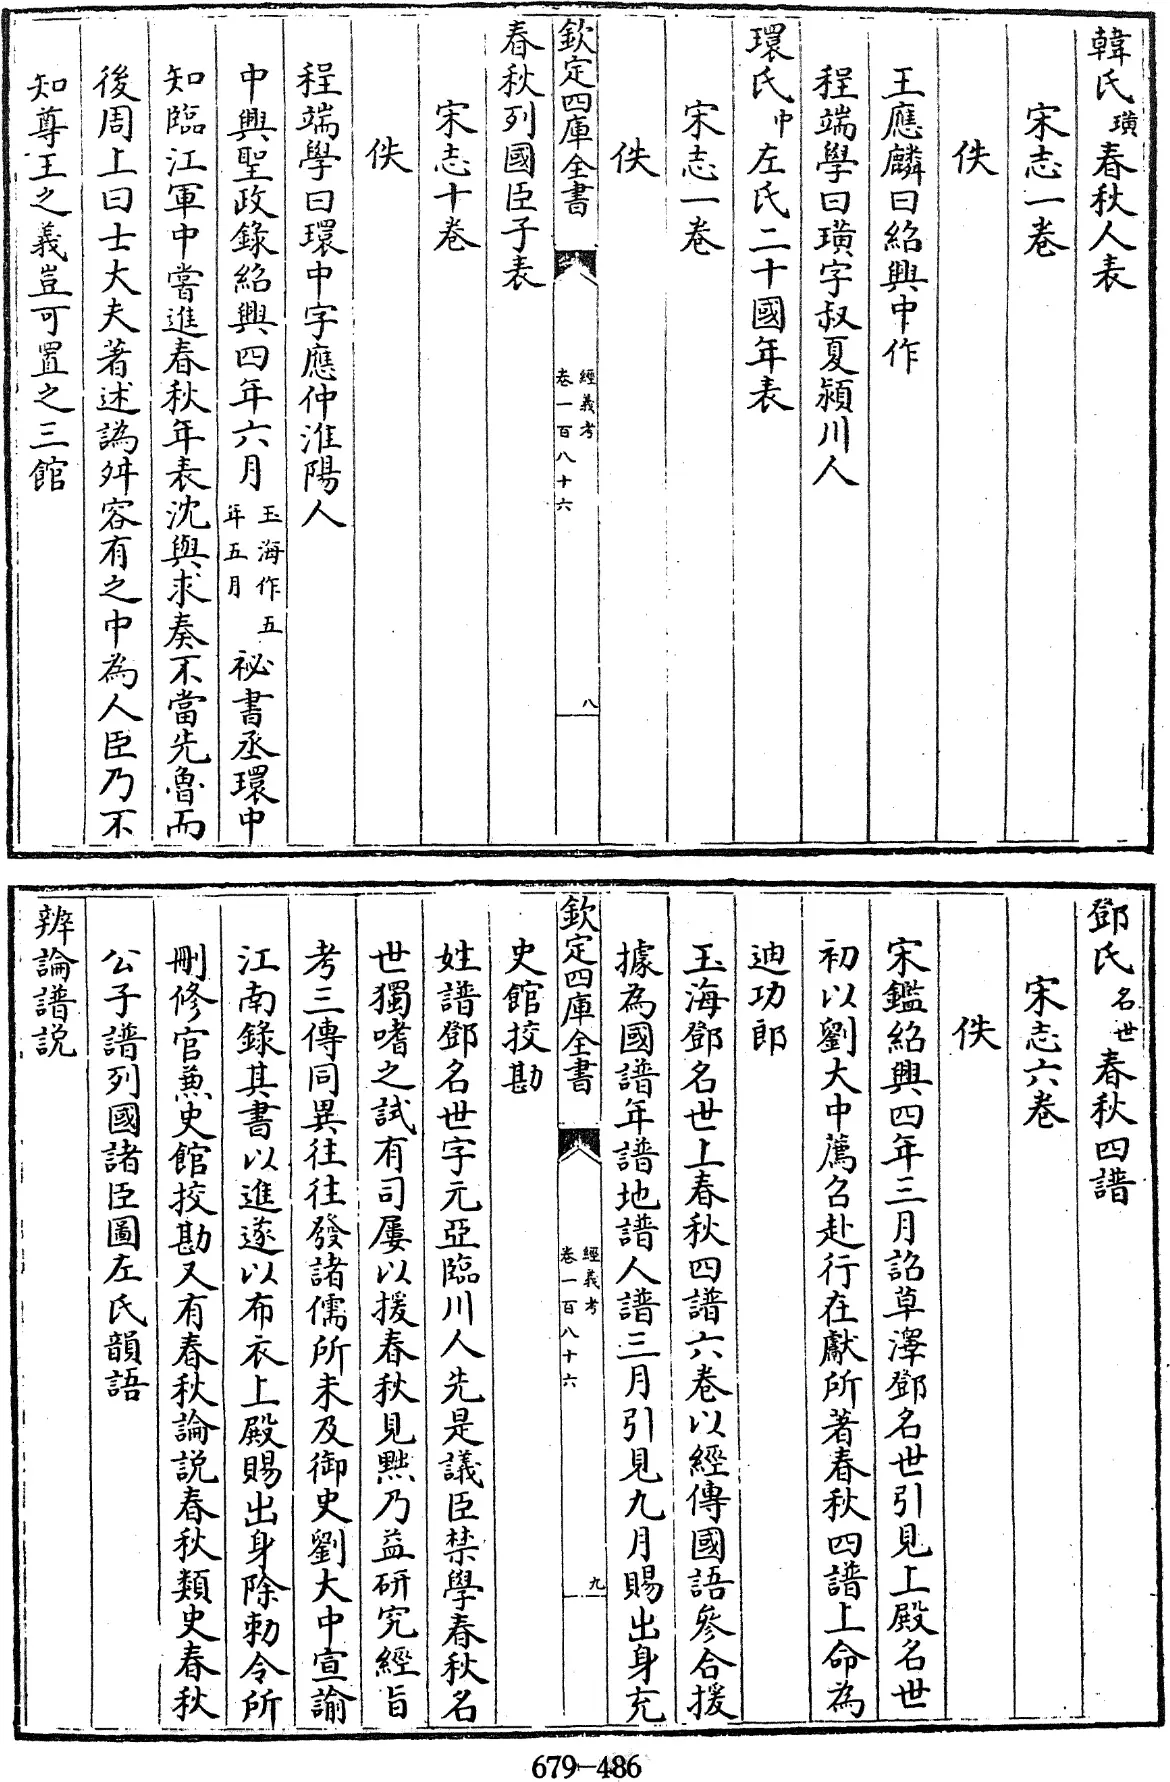 韓氏璜春秋人表
宋志一卷
佚
王應麟曰紹興中作
程端學曰璜字叔夏潁川人
環氏中左氏二十國年表
宋志一卷
佚
欽定四庫全書
經義考
卷一百八十六
八
春秋列國臣子表
宋志十卷
佚
程端學曰環中字應仲淮陽人
中興聖政錄紹興四年六月玉海作五年五月祕書丞環中
知臨江軍中嘗進春秋年表沈與求奏不當先魯而
後周上曰士大夫著述譌舛容有之中為人臣乃不
知尊王之義豈可置之三館
鄧氏名世春秋四譜
宋志六卷
佚
宋鑑紹興四年三月詔草澤鄧名世引見上殿名世
初以劉大中薦召赴行在獻所著春秋四譜上命為
迪功郎
玉海鄧名世上春秋四譜六卷以經傳國語參合援
據為國譜年譜地譜人譜三月引見九月賜出身充
欽定四庫全書
經義考
卷一百八十六
九
史館挍勘
姓譜鄧名世字元亞臨川人先是議臣禁學春秋名
世獨嗜之試有司屢以援春秋見黜乃益研究經旨
考三傳同異往往發諸儒所未及御史劉大中宣諭
江南錄其書以進遂以布衣上殿賜出身除勅令所
刪修官兼史館挍勘又有春秋論說春秋類史春秋
公子譜列國諸臣圖左氏韻語
辨論譜說
679-486